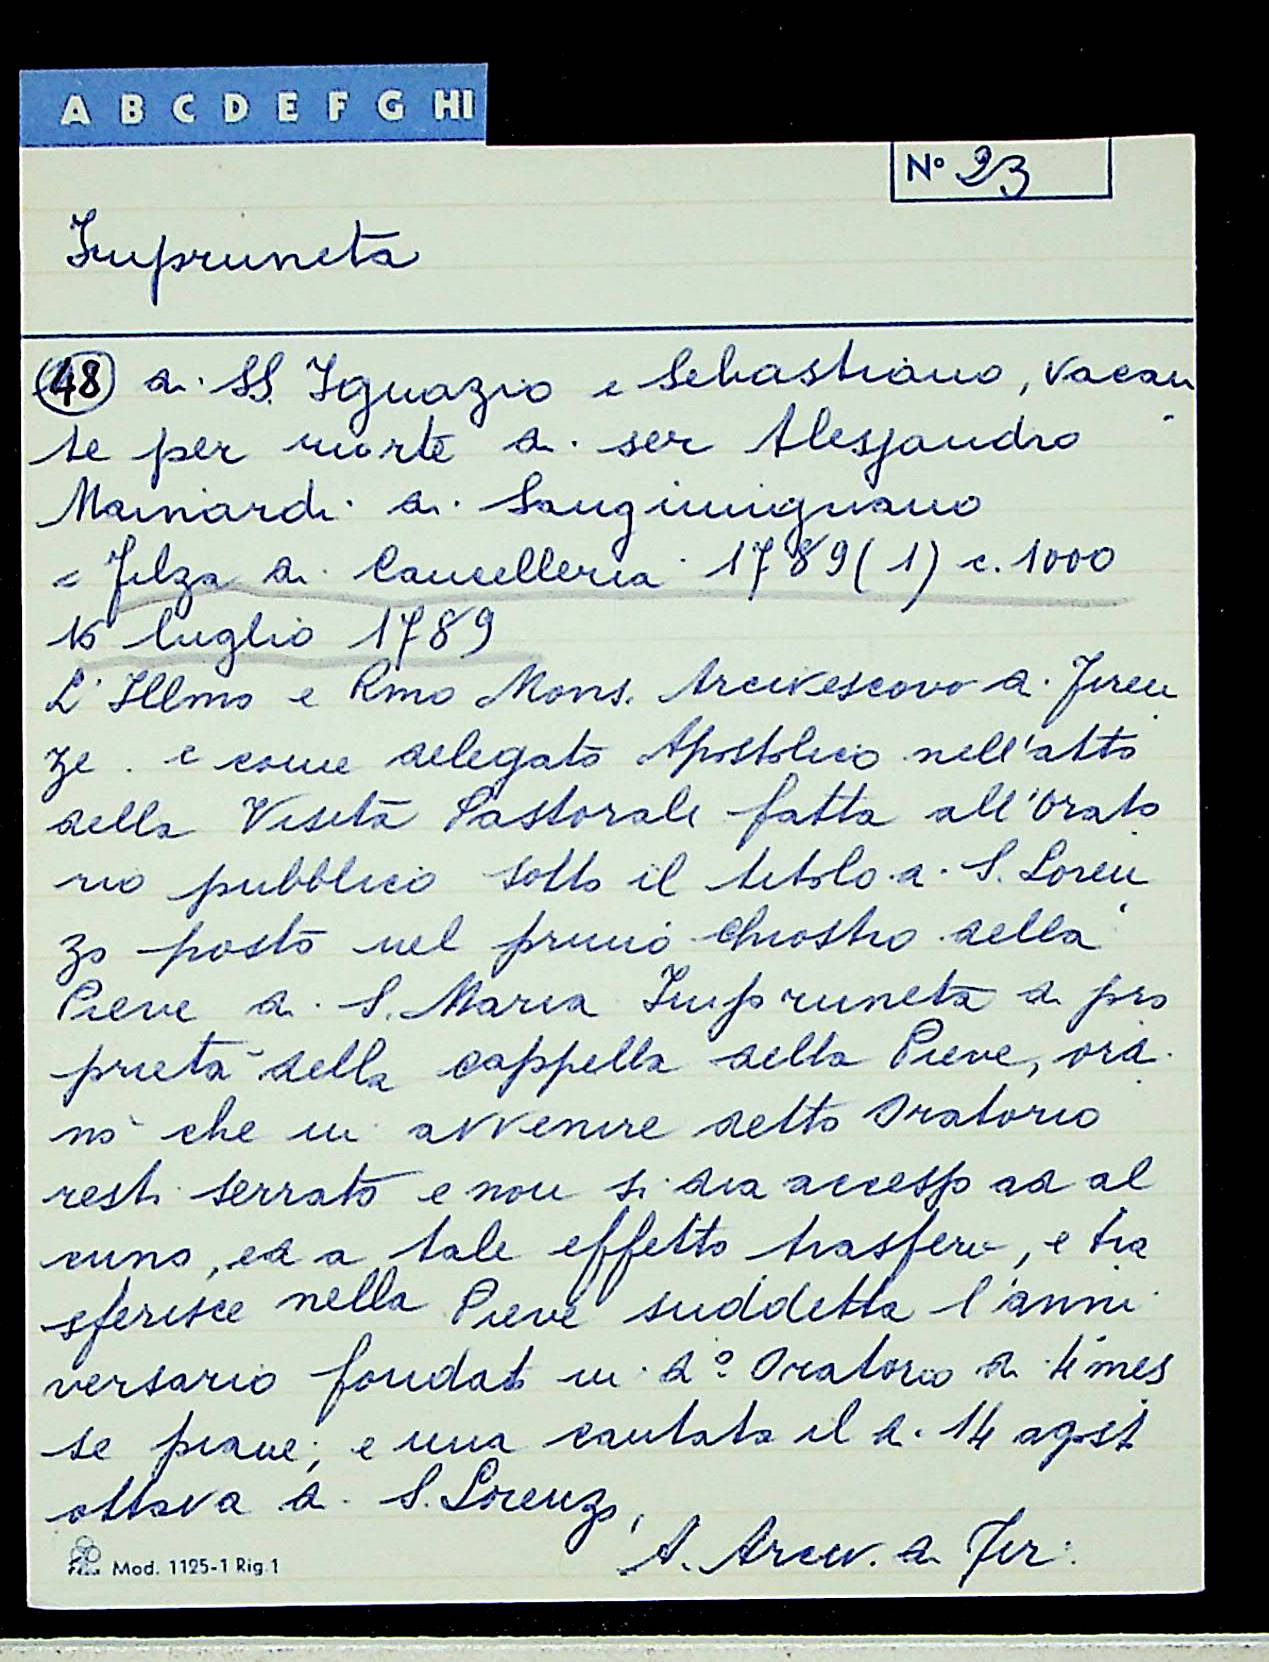 A B C D E F G HI
N° 23
Impruneta
48 di SS. Ignazio e Sebastiano, vacan
te per morte di ser Alessandro
Mainardi di Sangimignano
= Filza di Cancelleria 1789 (1) c. 1000
16 luglio 1789
L'Illmo e Rmo Mons. Arcivescovo di Firen
ze e come delegato Apostolico nell'atto
della Visita Pastorale fatta all'Orato
rio pubblico sotto il titolo di S. Loren
zo posto nel primo chiostro della
Pieve di S. Maria Impruneta di pro
prietà della cappella della Pieve, ordi
nò che in avvenire detto Oratorio
resti serrato e non si dia accesso ad al
cuno, ed a tale effetto trasferì, e tra
sferisce nella Pieve suddetta l'anni
versario fondat in d° Oratorio di 4 mes
se piane; e una cantata il dì 14 agost
ottava di S. Lorenzo,
A. Arciv. di Fir.
Mod. 1125-1 Rig.1